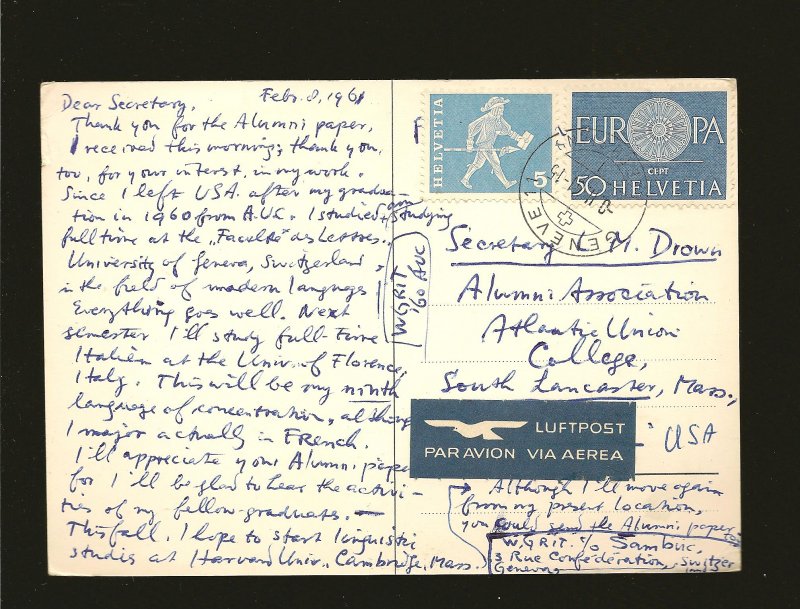 Febr. 8, 1961
Dear Secretary,
Thank you for the Alumni paper,
I received this morning; thank you,
too, for your interest in my work.
Since I left USA after my gradua-
tion in 1960 from A.U.C. I studied + am studying
full time at the „Faculté des Lettres",
University of Geneva, Switzerland,
in the field of modern languages!
Everything goes well. Next
semester I'll study full-time
Italian at the Univ. of Florence,
Italy. This will be my ninth
language of concentration, although
I major actually in French.
I'll appreciate your Alumni paper
for I'll be glad to hear the activi-
ties of my fellow-graduates. —
This fall, I hope to start linguistic
studies at Harvard Univ., Cambridge, Mass.
WGRIT
'60 AUC
HELVETIA
5
EUROPA
CEPT
50 HELVETIA
GENEVE 1
Secretary / M. Drown
Alumni Association
Atlantic Union
College,
South Lancaster, Mass.,
USA
LUFTPOST
PAR AVION VIA AEREA
Although I'll move again
from my present location,
you could send the Alumni paper to
W. GRIT c/o Sambuc,
3 Rue Confédération,
Geneva, Switzerland